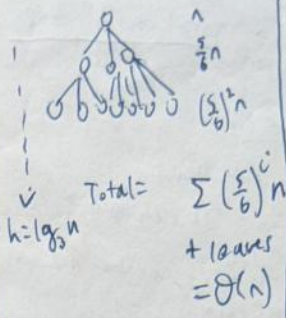 n
5/6 n
(5/6)² n
h = lg₃ n
Total = Σ (5/6)ⁱ n
+ leaves
= Θ(n)